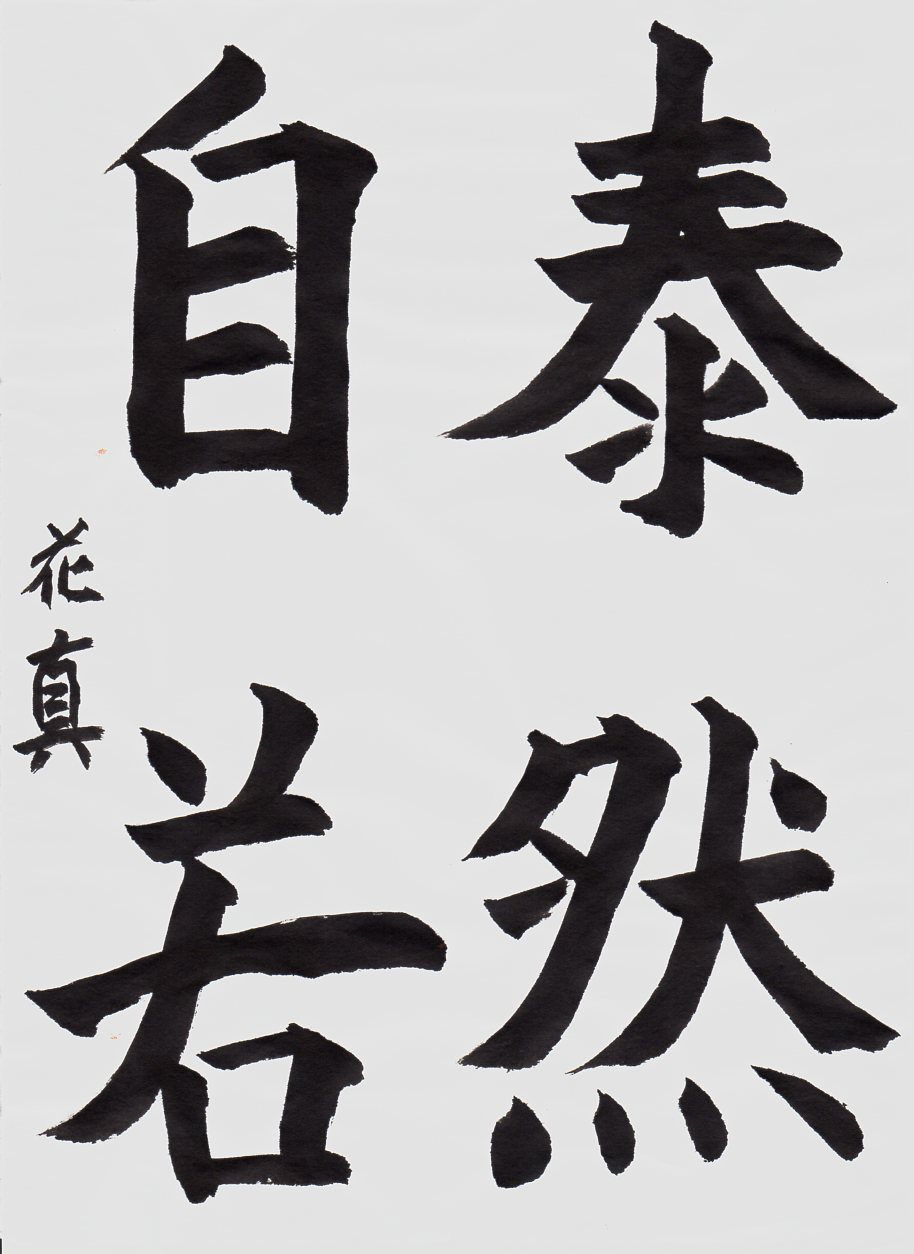 泰然
自若
花真